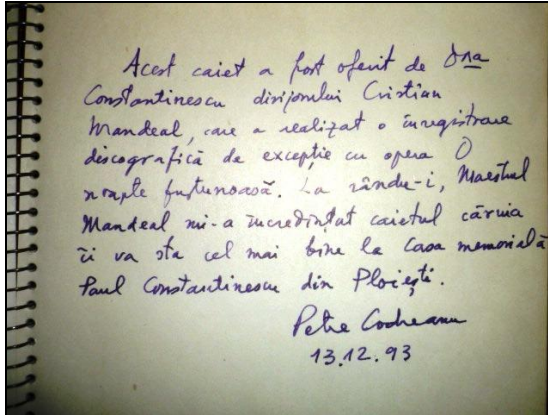 Acest caiet a fost oferit de Dna
Constantinescu dirijorului Cristian
Mandeal, care a realizat o înregistrare
discografică de excepţie cu opera O
noapte furtunoasă. La rându-i, Maestrul
Mandeal mi-a încredinţat caietul căruia
îi va sta cel mai bine la Casa memorială
Paul Constantinescu din Ploieşti.
Petre Codreanu
13.12.93